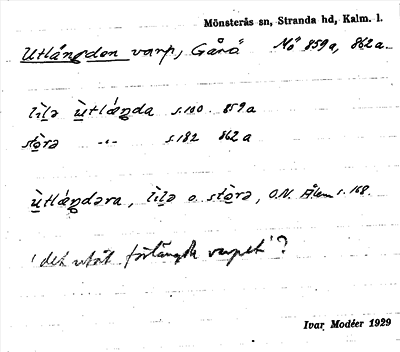 Mönsterås sn, Stranda hd, Kalm. l.
Utlångdan varp, Gårö Nö 859a, 862a.
lìlə ùtlánda s.100. 859a
stòrə -"- s.182 862a
ùtlándəra, lìlə o. stòrə, O.N. Ålem s. 168.
'det utåt förlängda varpet'?
Ivar Modéer 1929